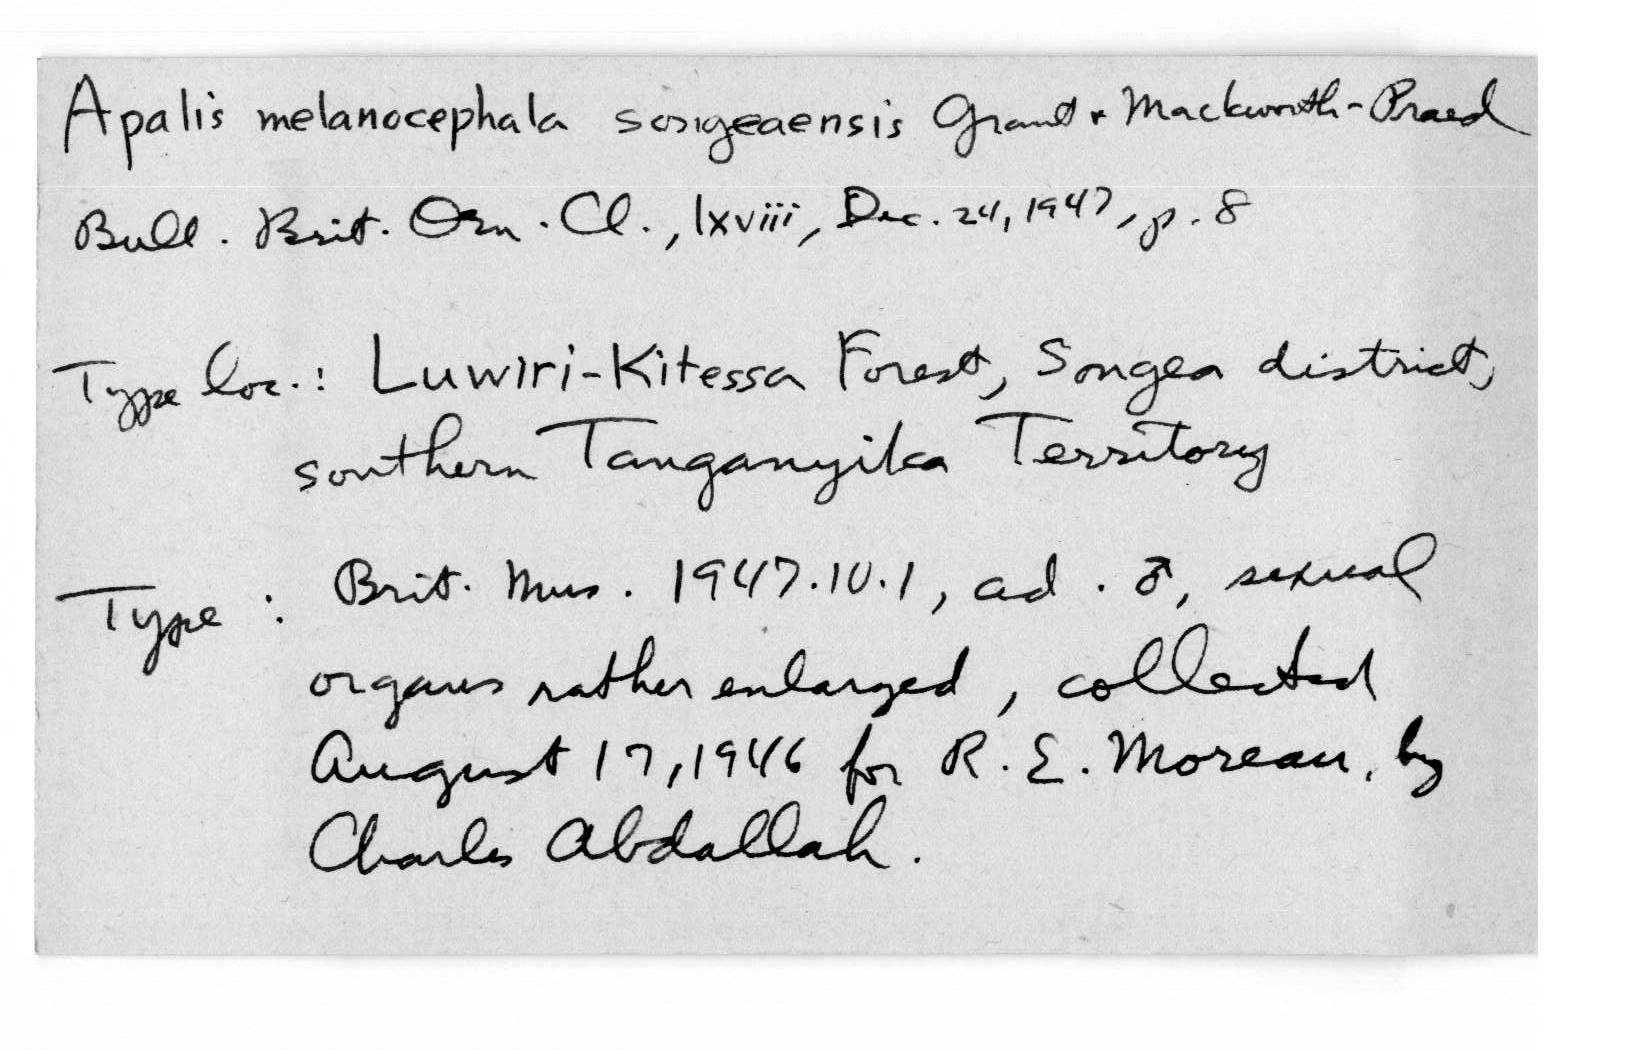 Apalis melanocephala songeaensis Grant & Mackworth-Praed
Bull. Brit. Orn. Cl., lxviii, Dec. 24, 1947, p. 8
Type loc.: Luwiri-Kitessa Forest, Songea district,
southern Tanganyika Territory
Type: Brit. Mus. 1947.10.1, ad. ♂, sexual
organs rather enlarged, collected
August 17, 1946 for R. E. Moreau, by
Charles Abdallah.